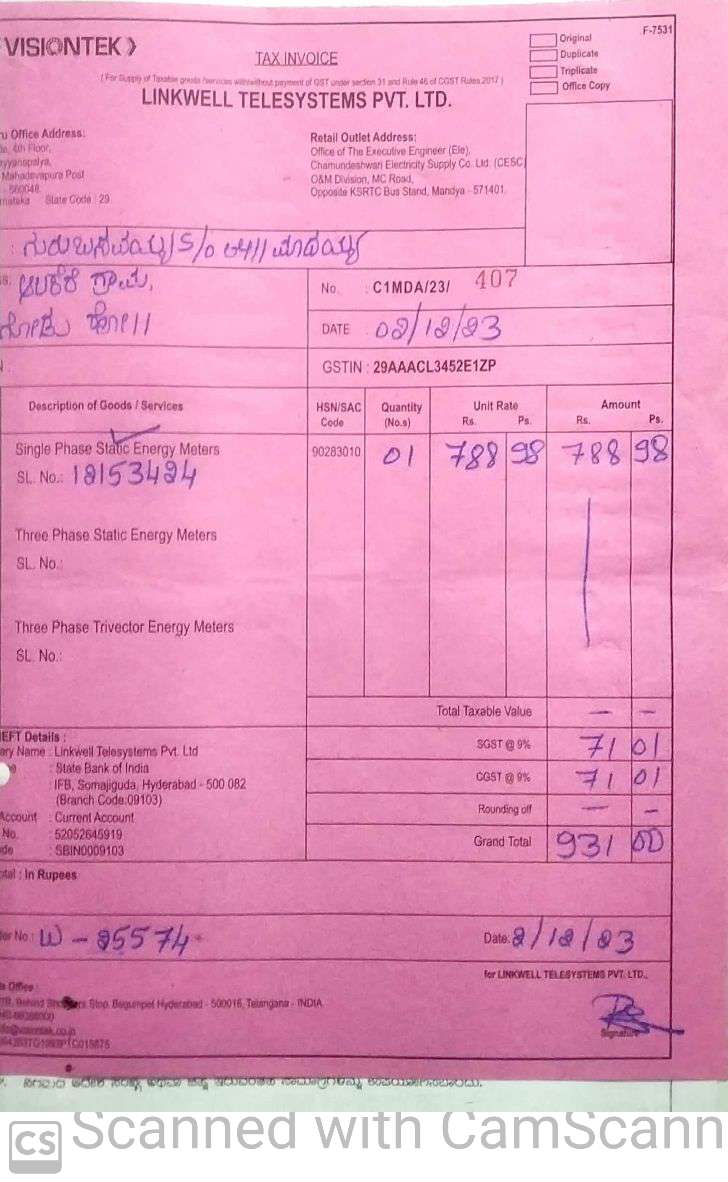 VISIONTEK
F-7531
Original
Duplicate
Triplicate
Office Copy
TAX INVOICE
( For Supply of Taxable goods /services with/without payment of GST under section 31 and Rule 46 of CGST Rules 2017 )
LINKWELL TELESYSTEMS PVT. LTD.
Office Address:
4th Floor,
Mahadevapura Post
State Code : 29
Retail Outlet Address:
Office of The Executive Engineer (Ele),
Chamundeshwari Electricity Supply Co. Ltd. (CESC)
O&M Division, MC Road,
Opposite KSRTC Bus Stand, Mandya - 571401.
S/o
No. : C1MDA/23/ 407
DATE : 02/12/23
GSTIN : 29AAACL3452E1ZP
Description of Goods / Services HSN/SAC Code Quantity (No.s) Unit Rate Rs. Ps. Amount Rs. Ps.
Single Phase Static Energy Meters 90283010 01 788 98 788 98
SL. No.: 12153424
Three Phase Static Energy Meters
SL. No.:
Three Phase Trivector Energy Meters
SL. No.:
Total Taxable Value — —
EFT Details :
ary Name : Linkwell Telesystems Pvt. Ltd
SGST @ 9% 71 01
: State Bank of India
: IFB, Somajiguda, Hyderabad - 500 082
CGST @ 9% 71 01
(Branch Code:09103)
Account : Current Account
Rounding off — –
No. : 52052645919
: SBIN0009103
Grand Total 931 00
: In Rupees
No.: W - 25574
Date: 2/12/23
for LINKWELL TELESYSTEMS PVT. LTD.,
Office :
Stop, Begumpet Hyderabad - 500016, Telangana - INDIA.
Signature
CS Scanned with CamScann